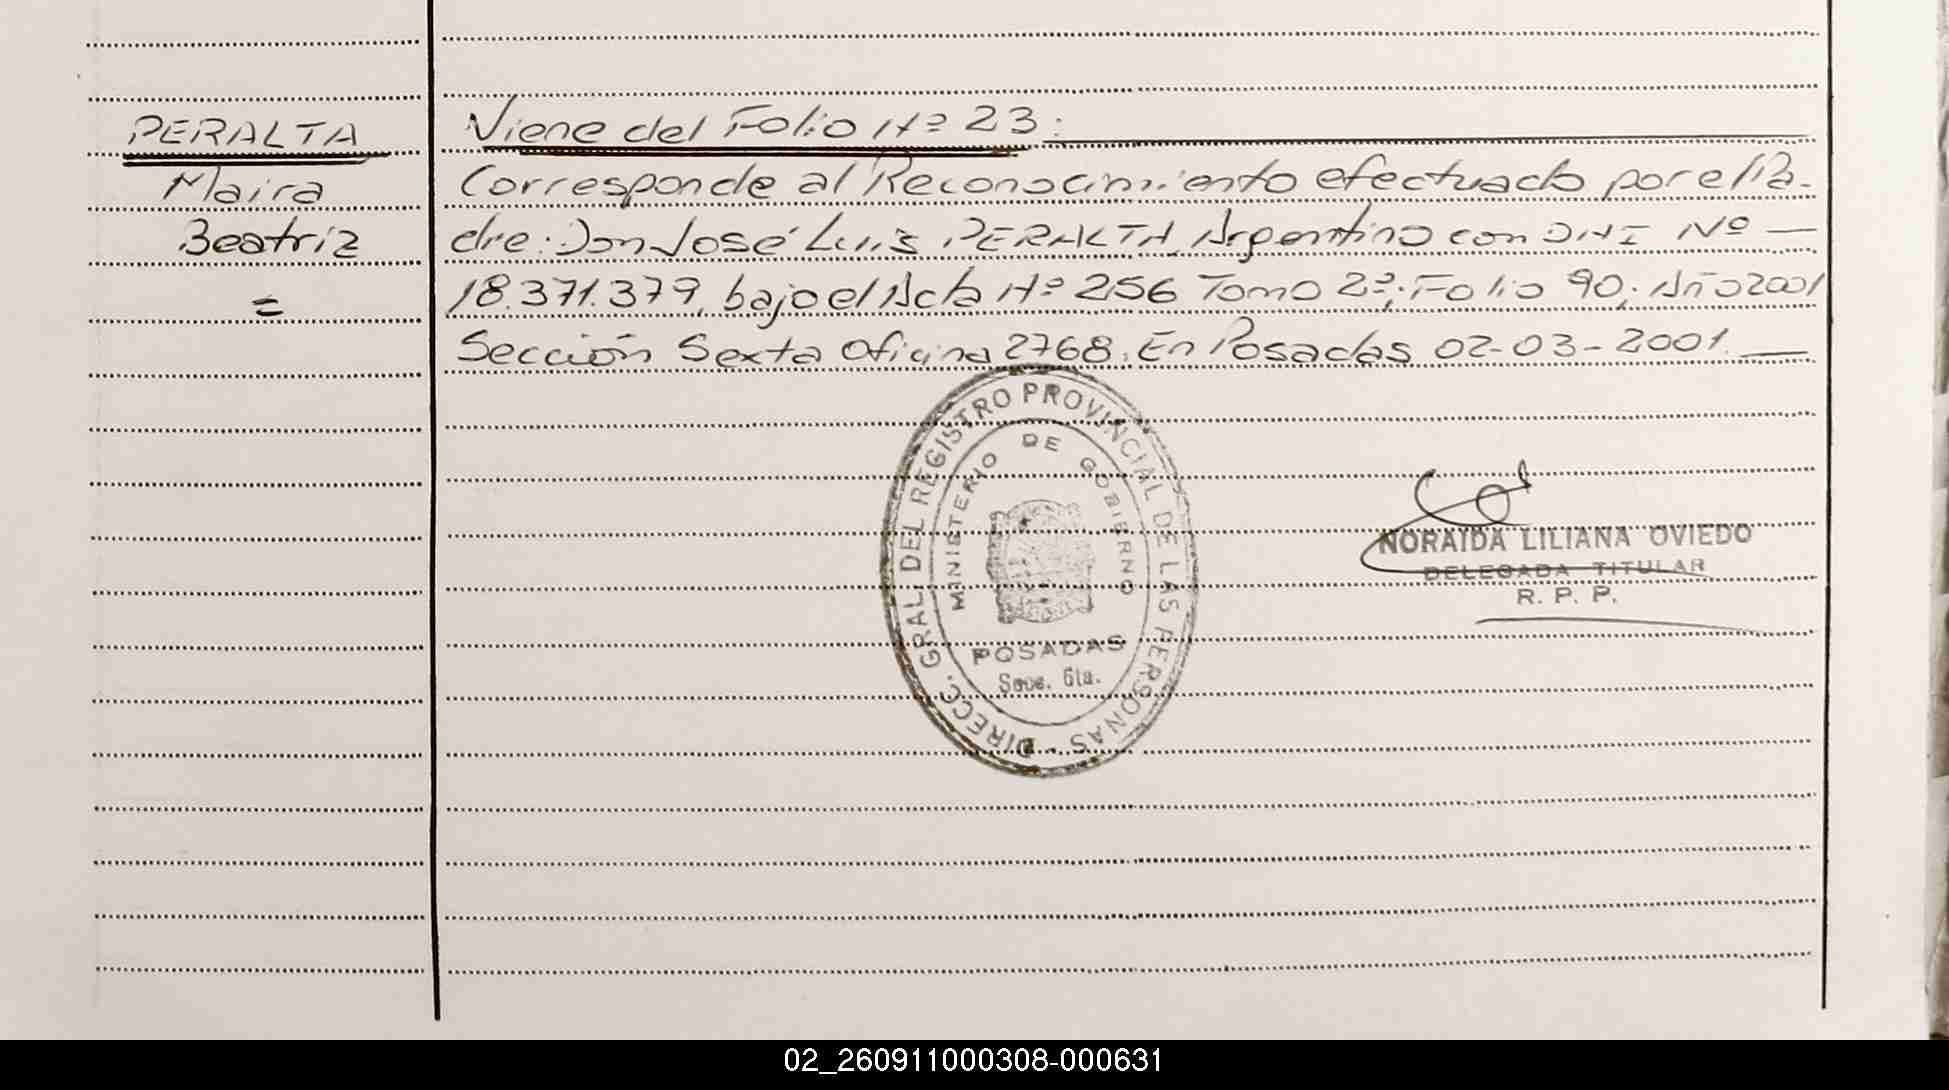 PERALTA
Maira
Beatriz
=
Viene del Folio Nº 23:
Corresponde al Reconocimiento efectuado por el Pa-
dre: Don José Luis PERALTA, Argentino con DNI Nº —
18.371.379, bajo el Acta Nº 256 Tomo 2º; Folio 90; Año 2001
Sección Sexta Oficina 2768. En Posadas 02-03-2001. —
DIRECC. GRAL. DEL REGISTRO PROVINCIAL DE LAS PERSONAS -
MINISTERIO DE GOBIERNO
POSADAS
Secc. 6ta.
NORAIDA LILIANA OVIEDO
DELEGADA TITULAR
R. P. P.
02_260911000308-000631